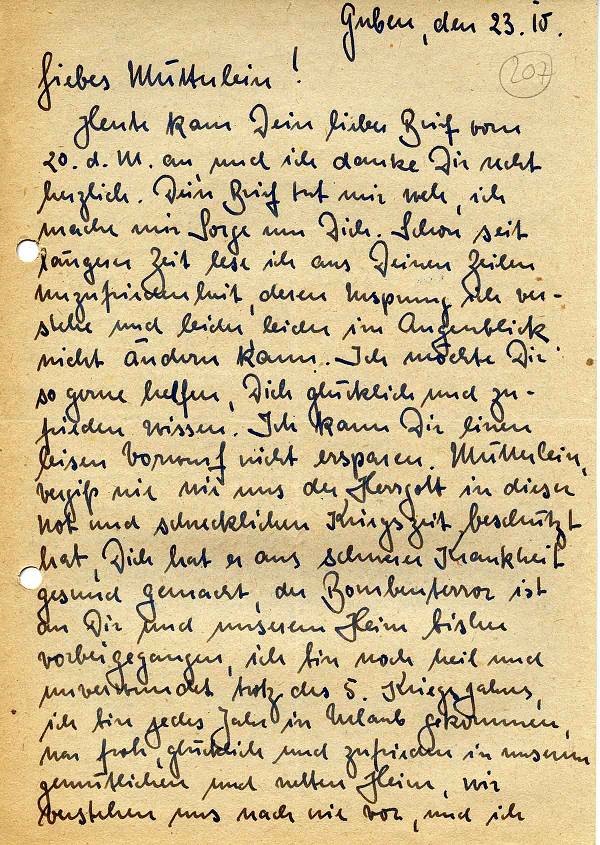 Guben, den 23. IV.
207
Liebes Mütterlein!
Heute kam Dein lieber Brief vom
20. d. M. an, und ich danke Dir recht
herzlich. Dein Brief tat mir weh, ich
mache mir Sorge um Dich. Schon seit
längerer Zeit lese ich aus Deinen Zeilen
Unzufriedenheit, deren Ursprung ich ver-
stehe und leider leider im Augenblick
nicht ändern kann. Ich möchte Dir
so gerne helfen, Dich glücklich und zu-
frieden wissen. Ich kann Dir einen
leisen Vorwurf nicht ersparen. Mütterlein,
vergiß nie wie uns der Herrgott in dieser
Not und schrecklichen Kriegszeit beschützt
hat, Dich hat er aus schwerer Krankheit
gesund gemacht, der Bombenterror ist
an Dir und unserem Heim bisher
vorbeigegangen, ich bin noch heil und
unverwundet trotz des 5. Kriegsjahres,
ich bin jedes Jahr in Urlaub gekommen,
war froh, glücklich und zufrieden in unserem
gemütlichen und netten Heim, wir
verstehen uns nach wie vor, und ich